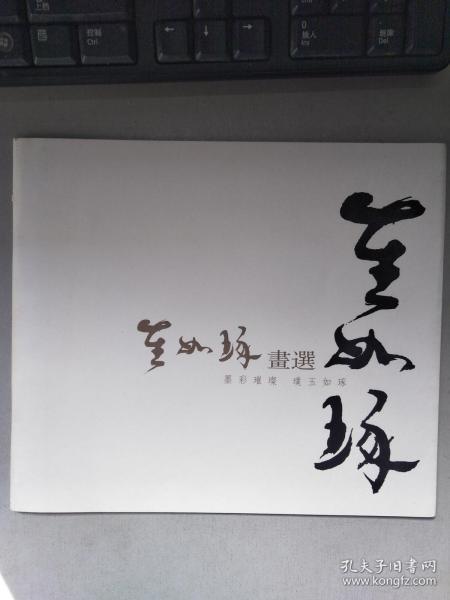 上档
控制
Ctrl
← ↓ →
0
插入
Ins
删除
Del
如琢
如琢 畫選
墨彩璀璨 璞玉如琢
孔夫子旧书网
www.kongfz.com